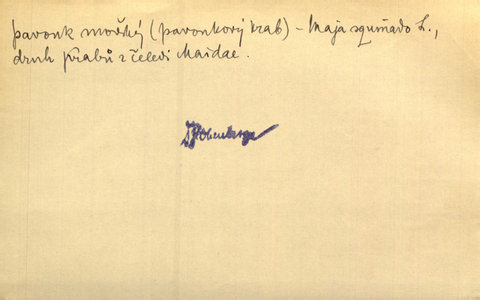 pavouk mořský (pavoukový krab) – Maja squinado L.,
druh krabů z čeledi Maidae.